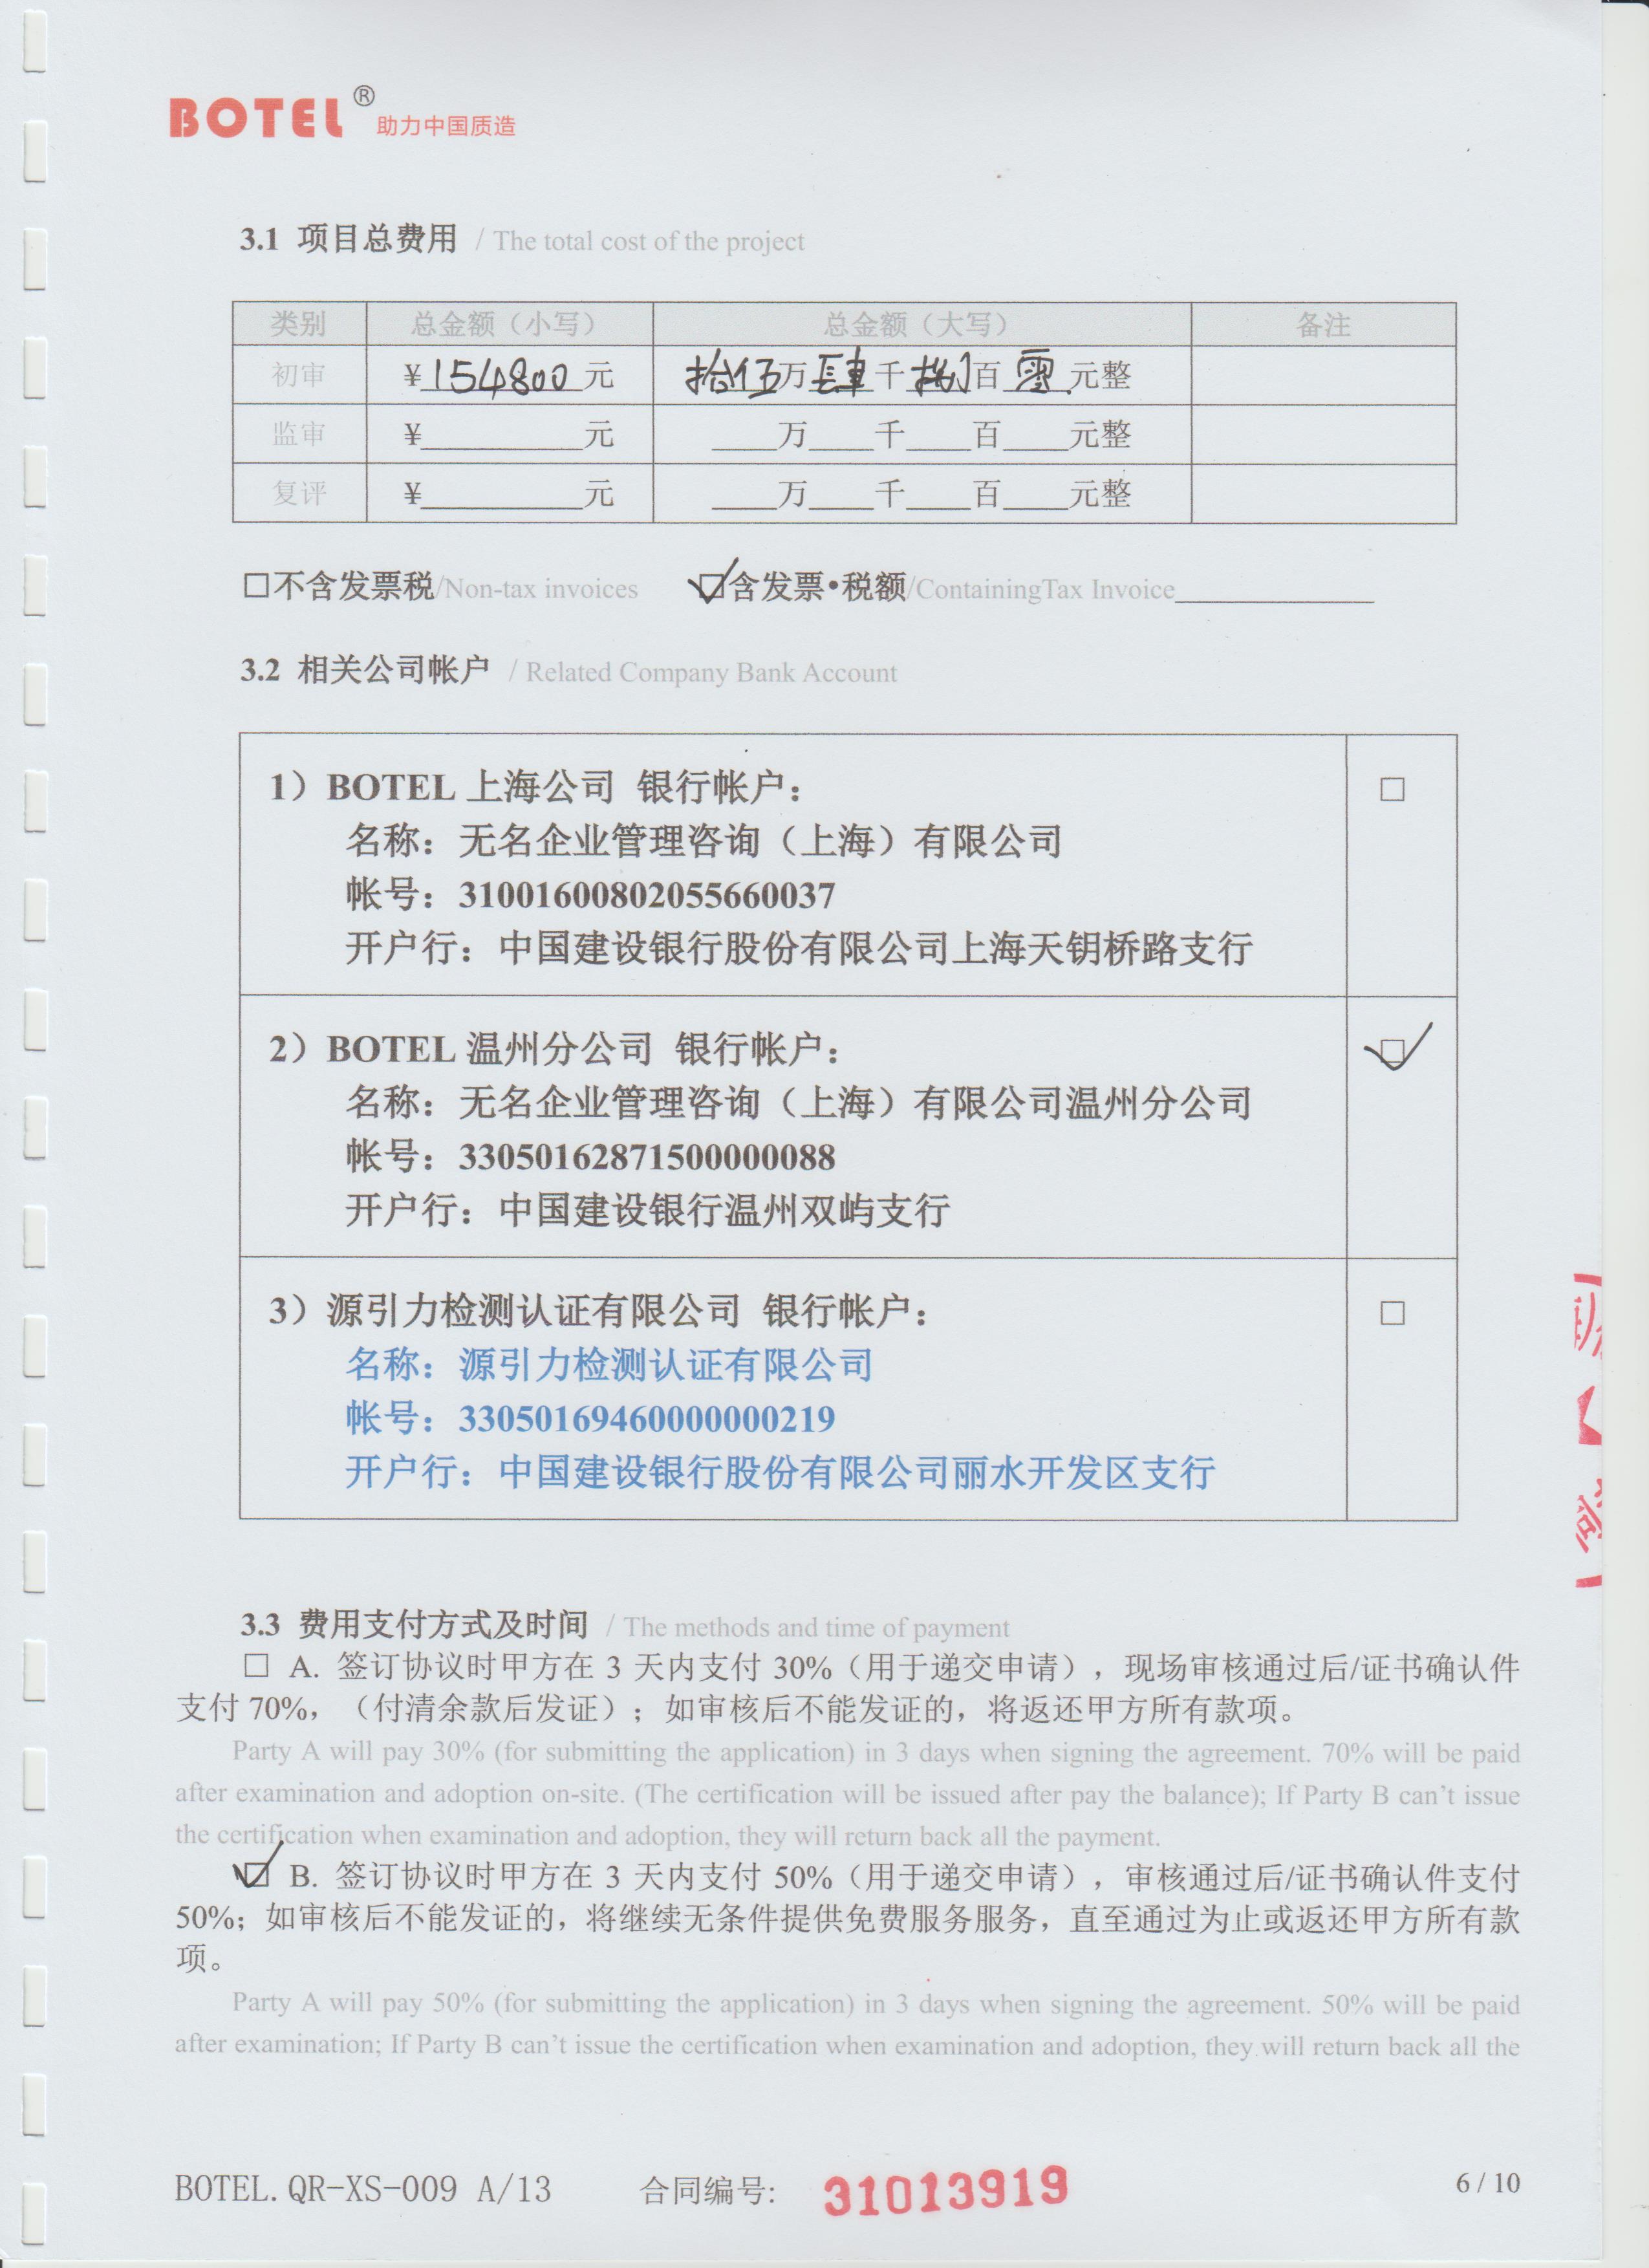 BOTEL® 助力中国质造
3.1 项目总费用 / The total cost of the project
类别 总金额（小写） 总金额（大写） 备注
初审 ¥154800元 拾伍万肆千捌百零元整
监审 ¥________元 ____万____千____百____元整
复评 ¥________元 ____万____千____百____元整
□不含发票税/Non-tax invoices ☑含发票•税额/ContainingTax Invoice____________
3.2 相关公司帐户 / Related Company Bank Account
1）BOTEL 上海公司 银行帐户： □
名称：无名企业管理咨询（上海）有限公司
帐号：31001600802055660037
开户行：中国建设银行股份有限公司上海天钥桥路支行
2）BOTEL 温州分公司 银行帐户： ☑
名称：无名企业管理咨询（上海）有限公司温州分公司
帐号：33050162871500000088
开户行：中国建设银行温州双屿支行
3）源引力检测认证有限公司 银行帐户： □
名称：源引力检测认证有限公司
帐号：33050169460000000219
开户行：中国建设银行股份有限公司丽水开发区支行
3.3 费用支付方式及时间 / The methods and time of payment
□ A. 签订协议时甲方在 3 天内支付 30%（用于递交申请），现场审核通过后/证书确认件
支付 70%，（付清余款后发证）；如审核后不能发证的，将返还甲方所有款项。
Party A will pay 30% (for submitting the application) in 3 days when signing the agreement. 70% will be paid
after examination and adoption on-site. (The certification will be issued after pay the balance); If Party B can't issue
the certification when examination and adoption, they will return back all the payment.
☑ B. 签订协议时甲方在 3 天内支付 50%（用于递交申请），审核通过后/证书确认件支付
50%；如审核后不能发证的，将继续无条件提供免费服务服务，直至通过为止或返还甲方所有款
项。
Party A will pay 50% (for submitting the application) in 3 days when signing the agreement. 50% will be paid
after examination; If Party B can't issue the certification when examination and adoption, they will return back all the
BOTEL.QR-XS-009 A/13 合同编号: 31013919 6 / 10